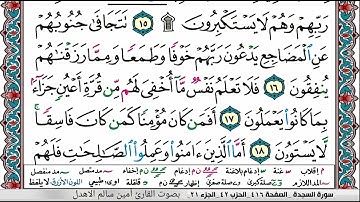 رَبِّهِمْ وَهُمْ لَا يَسْتَكْبِرُونَ ١٥ تَتَجَافَىٰ جُنُوبُهُمْ
عَنِ الْمَضَاجِعِ يَدْعُونَ رَبَّهُمْ خَوْفًا وَطَمَعًا وَمِمَّا رَزَقْنَاهُمْ
يُنفِقُونَ ١٦ فَلَا تَعْلَمُ نَفْسٌ مَّا أُخْفِيَ لَهُم مِّن قُرَّةِ أَعْيُنٍ جَزَاءً
بِمَا كَانُوا يَعْمَلُونَ ١٧ أَفَمَن كَانَ مُؤْمِنًا كَمَن كَانَ فَاسِقًا
لَّا يَسْتَوُونَ ١٨ أَمَّا الَّذِينَ آمَنُوا وَعَمِلُوا الصَّالِحَاتِ فَلَهُمْ
سورة السجدة - الصفحة ٤١٦ الحزب ٤٢ الجزء ٢١ بصوت القارئ أمين سالم الأهدل